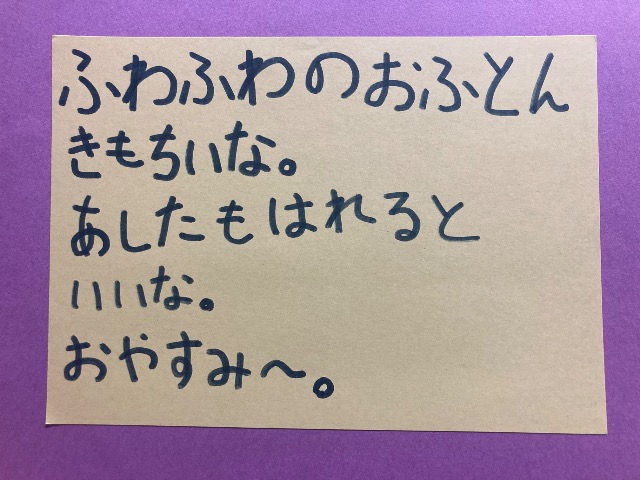 ふわふわのおふとん
きもちいな。
あしたもはれると
いいな。
おやすみ～。